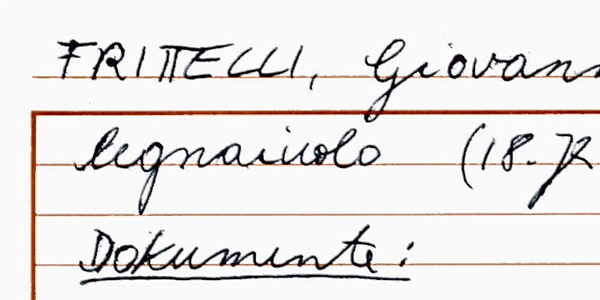 FRITTELLI, Giovann
legnaiuolo (18. Jh
Dokumente: